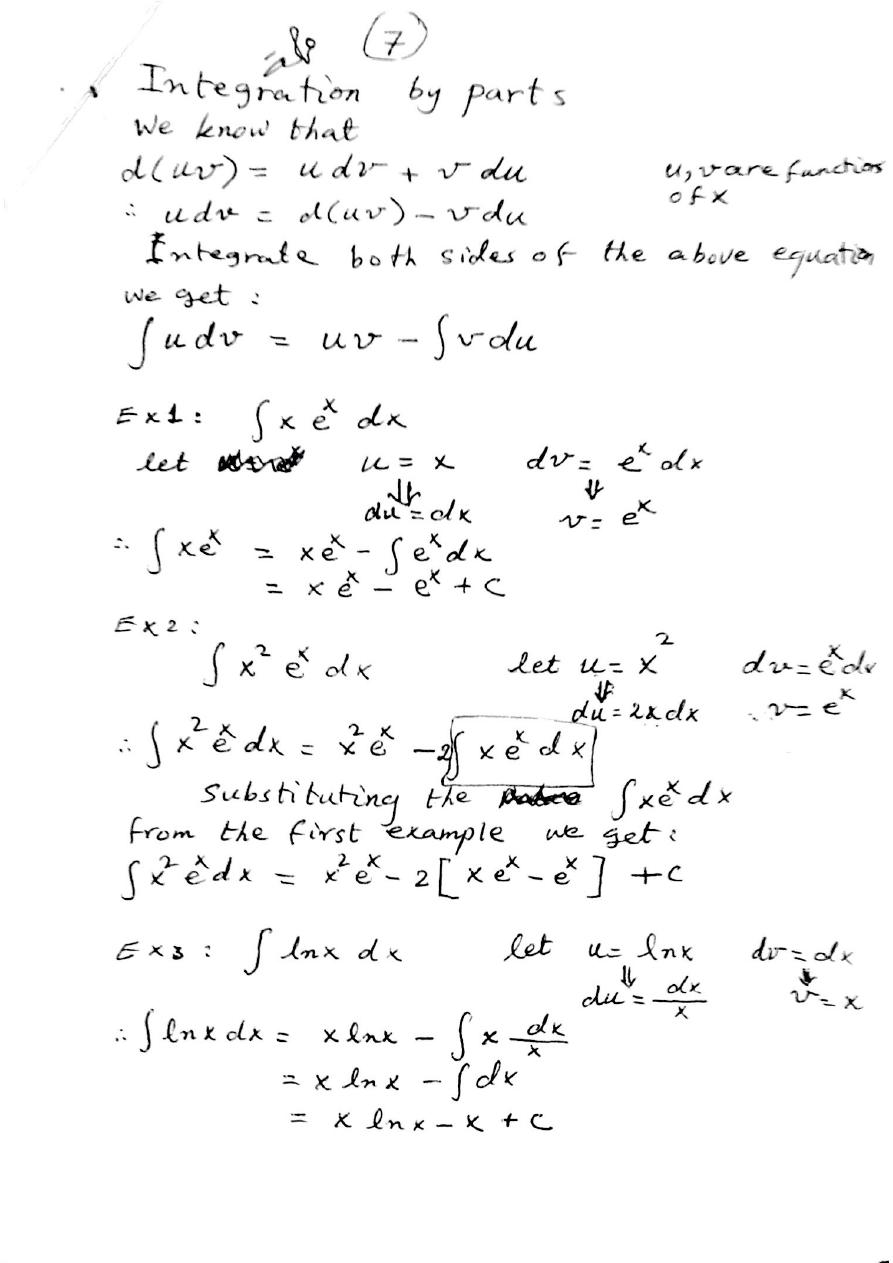 (7)
Integration by parts
We know that
d(uv) = u dv + v du    u, v are functions
of x
∴ u dv = d(uv) - v du
Integrate both sides of the above equation
we get :
∫ u dv = uv - ∫ v du
Ex1: ∫ x e^x dx
let u = x    dv = e^x dx
⇓    ⇓
du = dx    v = e^x
∴ ∫ x e^x = x e^x - ∫ e^x dx
= x e^x - e^x + C
Ex2:
∫ x² e^x dx    let u = x²    dv = e^x dx
⇓
du = 2x dx    v = e^x
∴ ∫ x² e^x dx = x² e^x - 2∫ x e^x dx
Substituting the ∫ x e^x dx
from the first example we get :
∫ x² e^x dx = x² e^x - 2[ x e^x - e^x ] + C
Ex3 : ∫ ln x dx    let u = ln x    dv = dx
⇓    ⇓
du = dx/x    v = x
∴ ∫ ln x dx = x ln x - ∫ x dx/x
= x ln x - ∫ dx
= x ln x - x + C